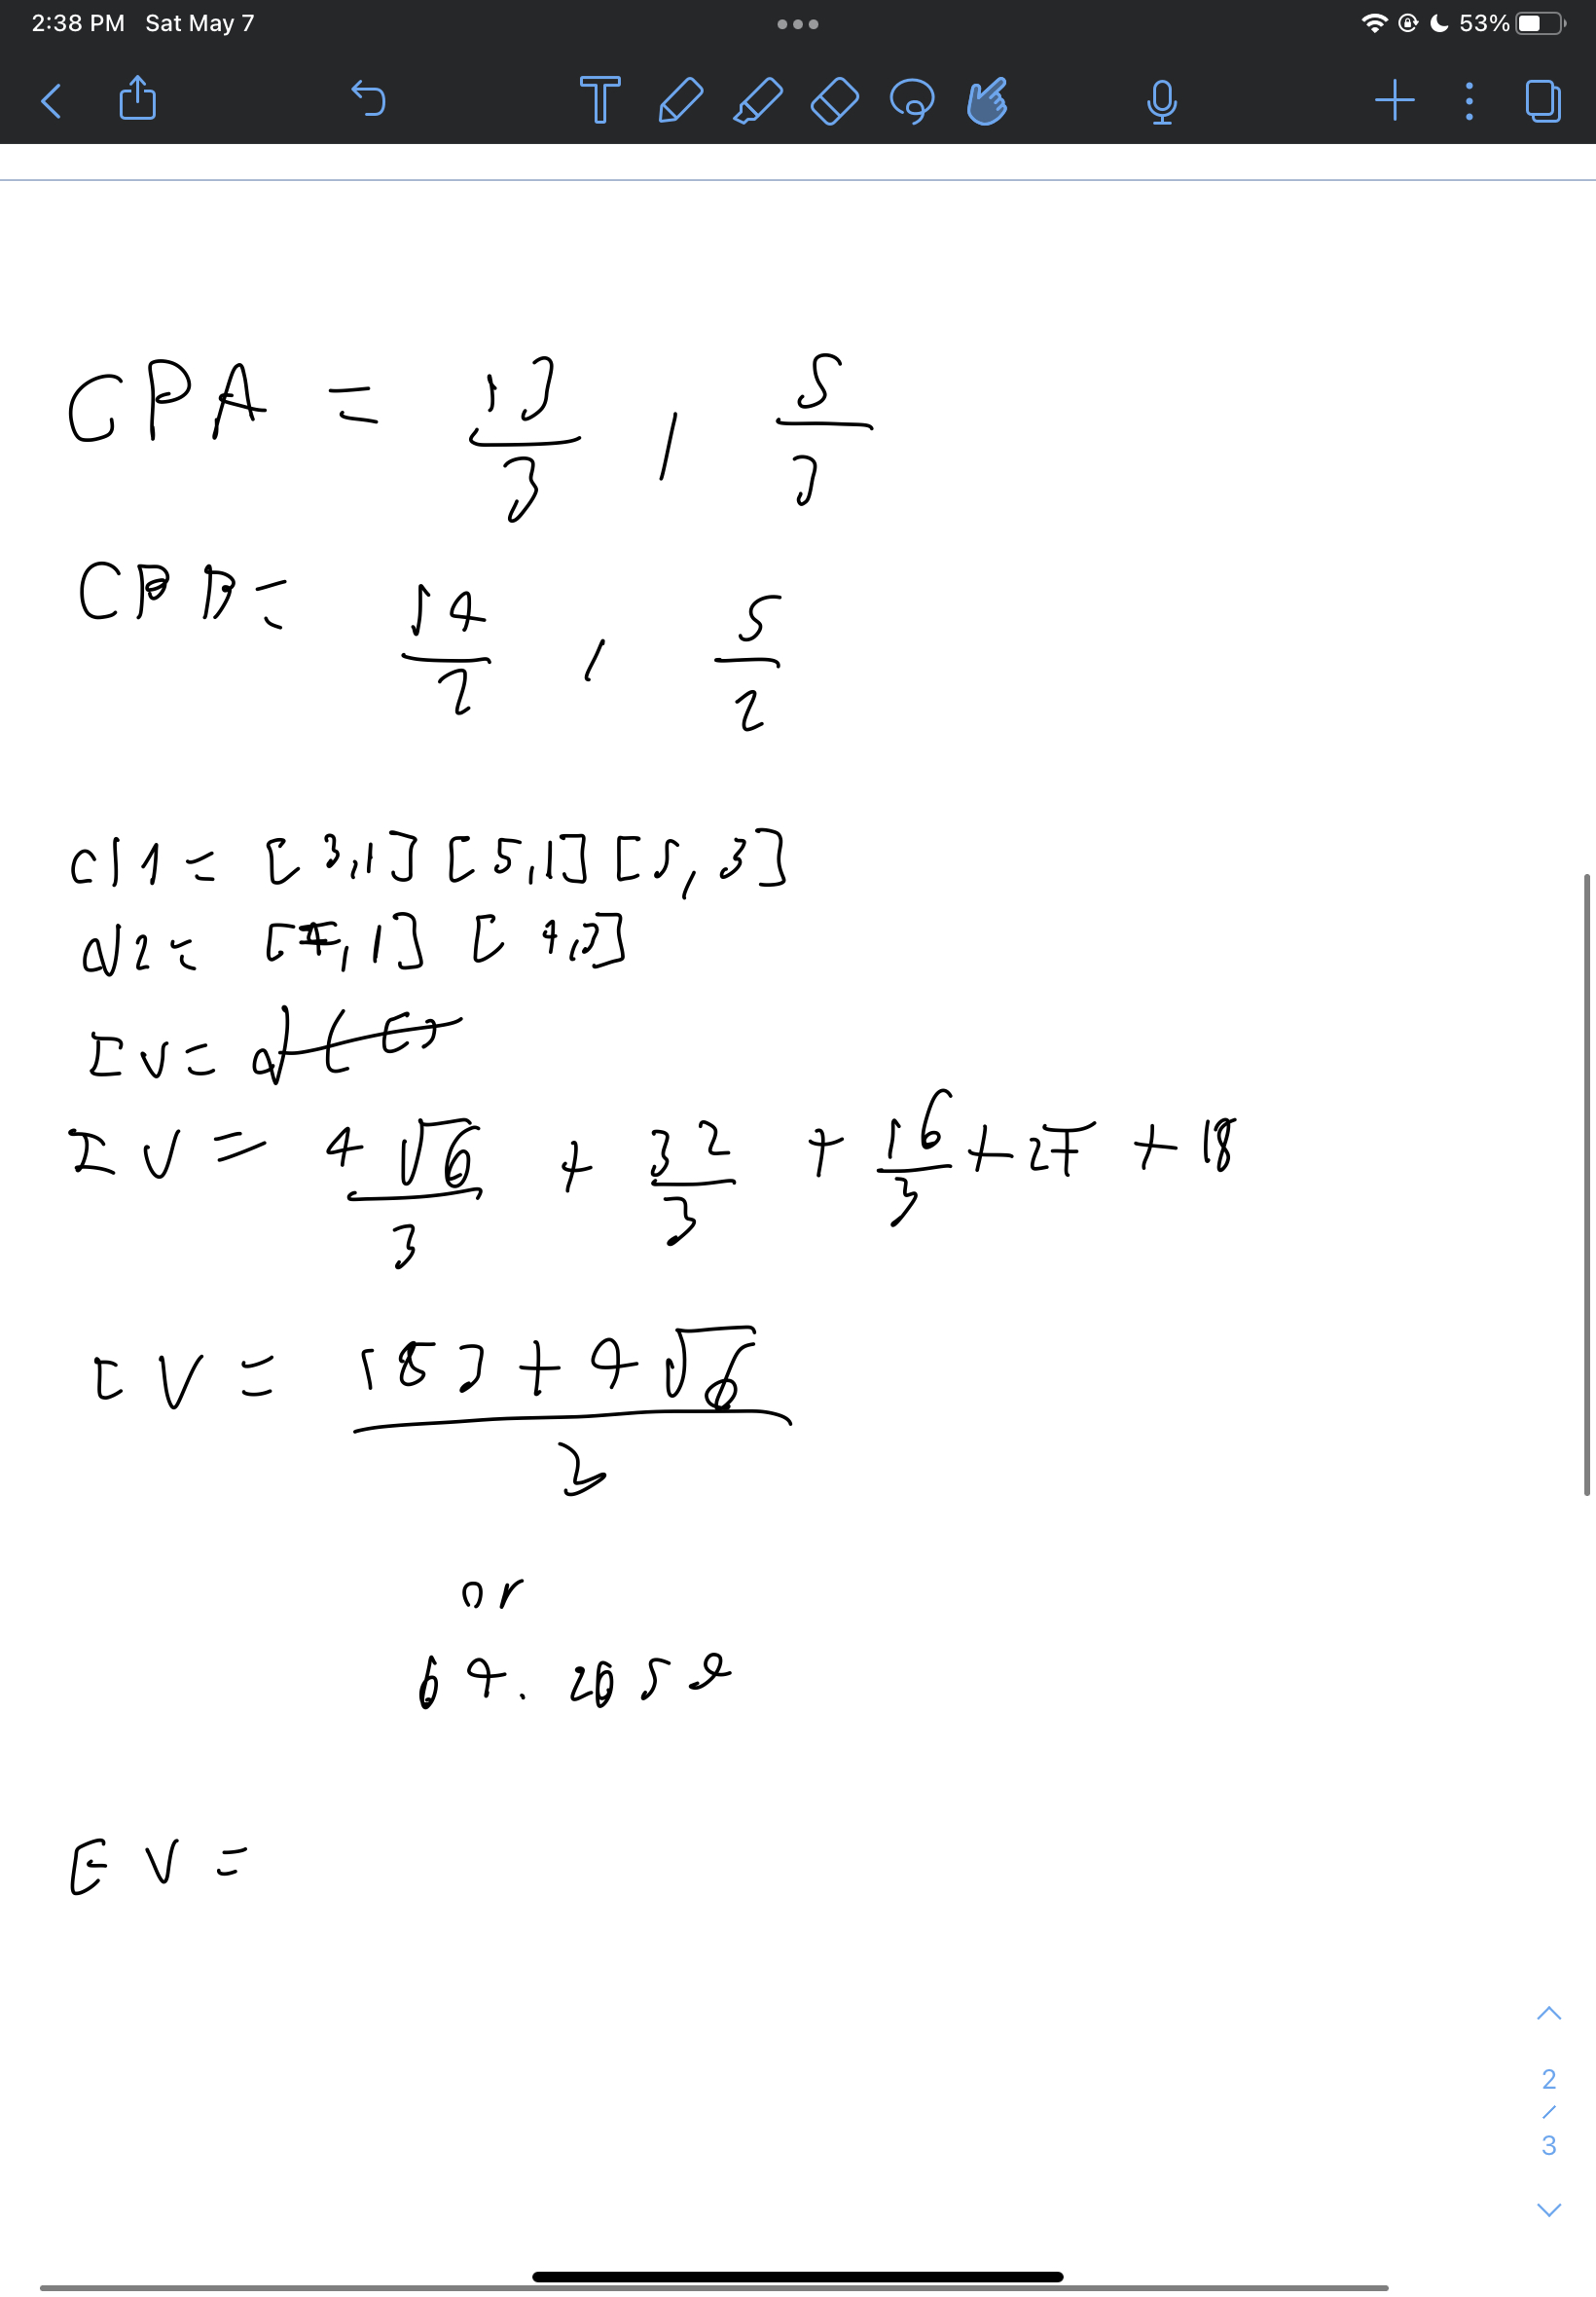 2:38 PM Sat May 7 53%
CPA = 13/3 , 5/3
CPB = 14/2 , 5/2
cl1 = [3,1] [5,1] [5,3]
cl2 = [7,1] [9,3]
IV =
IV = 4√6/3 + 32/3 + 16/3 + 27 + 18
IV = 183 + 4√6 / 2
or
64.2652
EV =
2/3